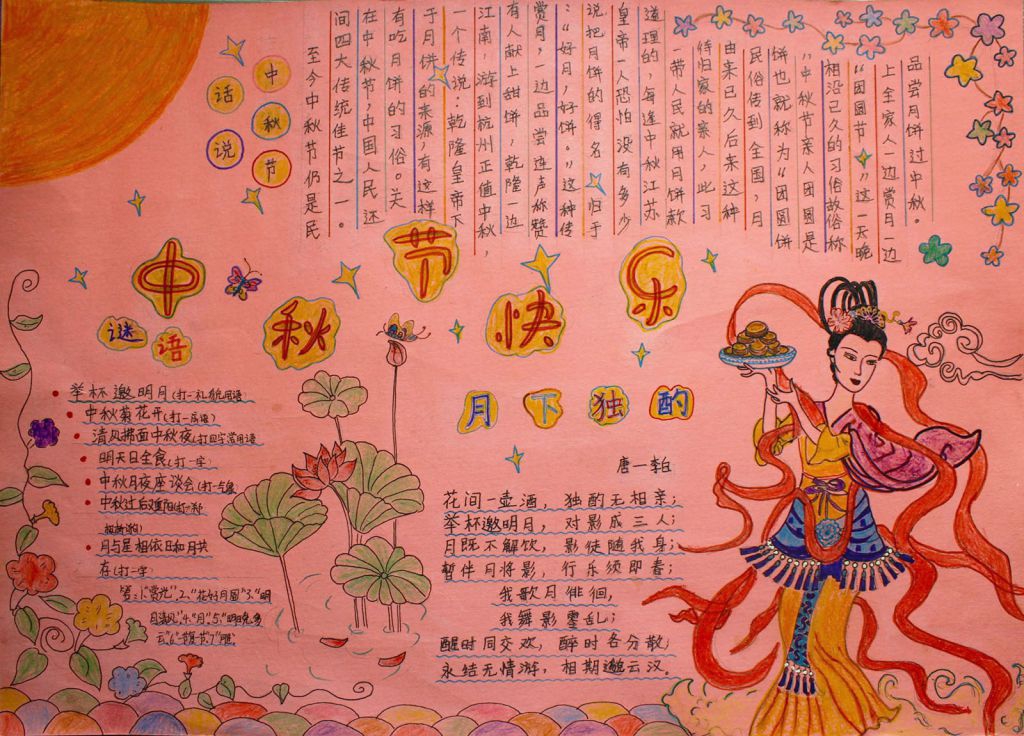 中秋节
话说
至今中秋节仍是民
间四大传统佳节之一。
在中秋节,中国人民还
有吃月饼的习俗。关
于月饼的来源,有这样
一个传说:乾隆皇帝下
江南,游到杭州正值中秋,
有人献上甜饼,乾隆一边
赏月,一边品尝连声称赞
:“好月,好饼。”这种传
说把月饼的得名归于
皇帝一人恐怕没有多少
道理的,每逢中秋江苏
一带人民就用月饼款
待归家的亲人,此习
由来已久后来这种
民俗传到全国,月
饼也就称为“团圆饼
”中秋节亲人团圆是
相沿已久的习俗故俗称
“团圆节”这一天晚
上全家人一边赏月一边
品尝月饼过中秋。
中秋节快乐
谜语
举杯邀明月(打一礼貌用语
中秋菊花开(打一成语)
清风拂面中秋夜(打四字常用语
明天日全食(打一字)
中秋月夜座谈会(打一气象
中秋过后又重阳(打一种
月与星相依日和月共
存(打一字)
答:1“赏光”2、“花好月圆”3“明
月清风”4“月”5“明日晚多
云”6
月下独酌
唐一李白
花间一壶酒, 独酌无相亲;
举杯邀明月, 对影成三人;
月既不解饮, 影徒随我身;
暂伴月将影, 行乐须即春;
我歌月徘徊,
我舞影零乱;
醒时同交欢, 醉时各分散;
永结无情游, 相期邈云汉。